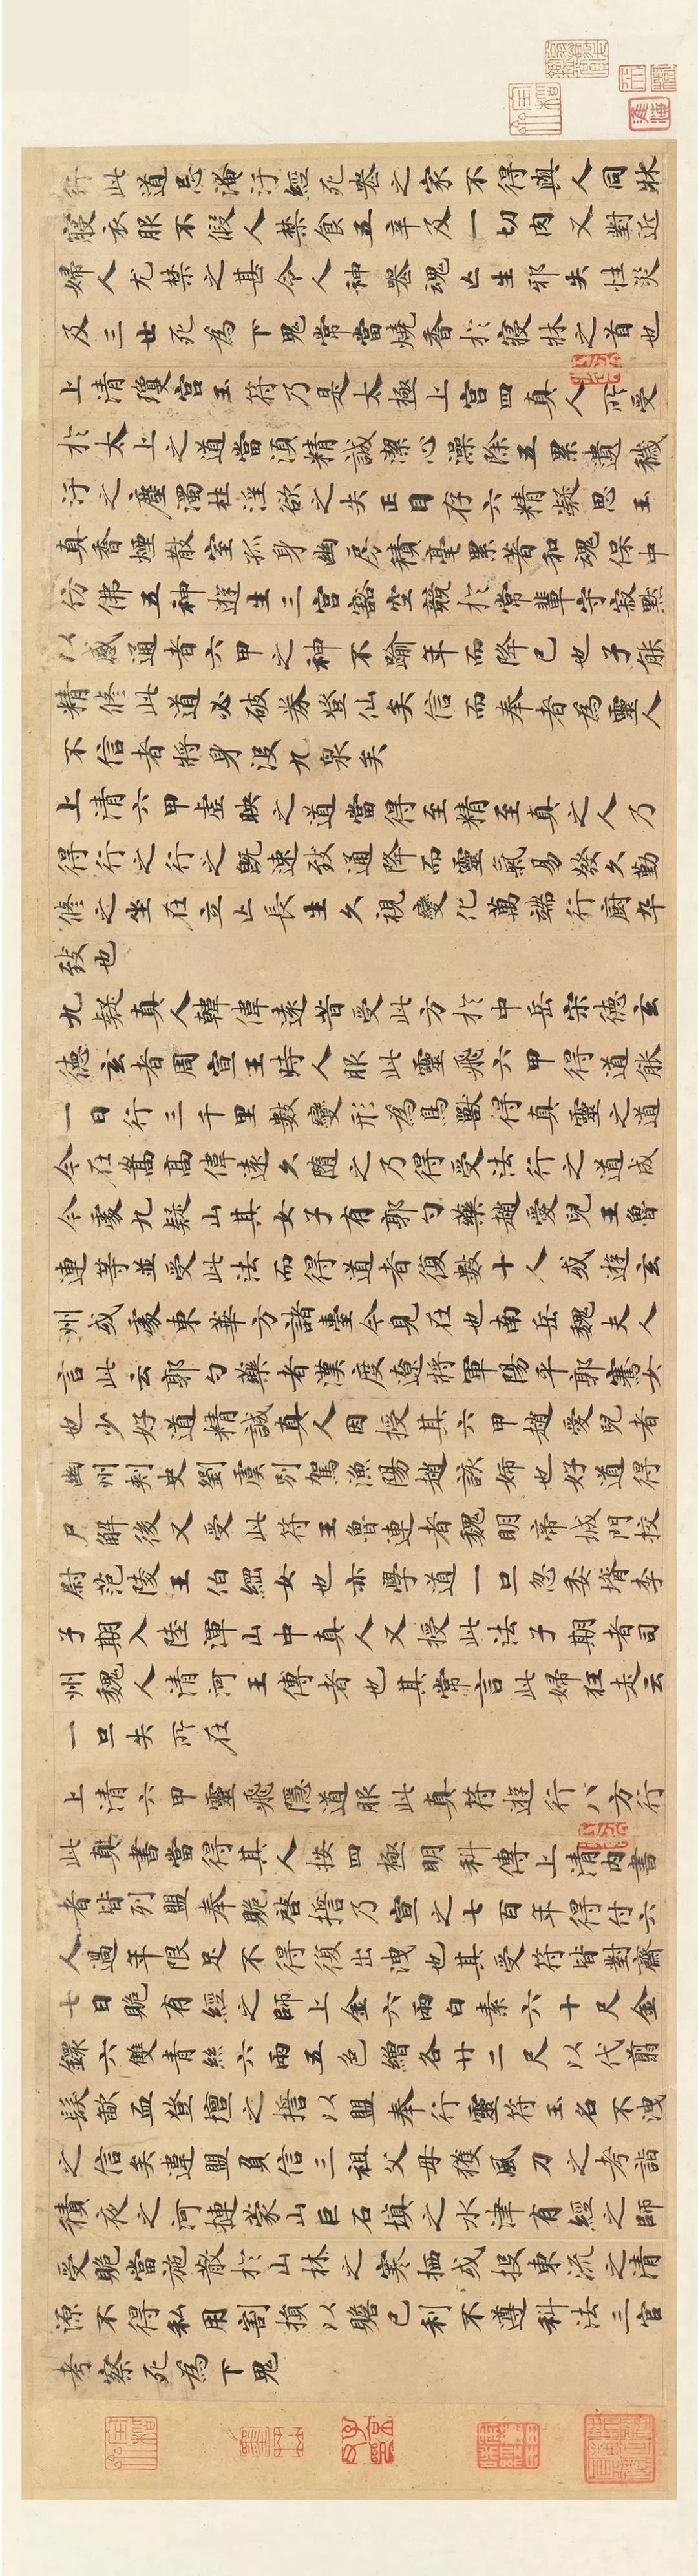 行此道忌淹汙經死喪之家不得與人同牀
寢衣服不假人禁食五辛及一切肉又對近
婦人尤禁之甚令人神喪魂亡生邪失性災
及三世死為下鬼常當燒香於寢牀之首也
上清瓊宮玉符乃是太極上宮四真人所受
於太上之道當須精誠潔心澡除五累遺穢
汙之塵濁杜淫欲之失正目存六精凝思玉
真香煙散室孤身幽房積毫累著和魂保中
仿佛五神遊生三宮豁空競於常輩守寂默
以感通者六甲之神不踰年而降己也子能
精修此道必破券登仙矣信而奉者為靈人
不信者將身沒九泉矣
上清六甲虛映之道當得至精至真之人乃
得行之行之既速致通降而靈氣易發久勤
修之坐在立亡長生久視變化萬端行廚卒
致也
九疑真人韓偉遠昔受此方於中岳宋德玄
德玄者周宣王時人服此靈飛六甲得道能
一日行三千里數變形為鳥獸得真靈之道
今在嵩高偉遠久隨之乃得受法行之道成
今處九疑山其女子有郭勺藥趙愛兒王魯
連等並受此法而得道者復數十人或遊玄
州或處東華方諸臺今見在也南岳魏夫人
言此云郭勺藥者漢度遼將軍陽平郭騫女
也少好道精誠真人因授其六甲趙愛兒者
幽州刾史劉虞別駕漁陽趙該婦也好道得
尸解後又受此符王魯連者魏明帝城門校
尉范陵王伯綱女也亦學道一旦忽委壻李
子期入陸渾山中真人又授此法子期者司
州魏人清河王傳者也其常言此婦狂走云
一旦失所在
上清六甲靈飛隱道服此真符遊行八方行
此真書當得其人按四極明科傳上清內書
者皆列盟奉贉啓誓乃宣之七百年得付六
人過年限足不得復出洩也其受符皆對齋
七日贉有經之師上金六兩白素六十尺金
鐶六雙青絲六兩五色繒各廿二尺以代翦
髮歃血登壇之誓以盟奉行靈符玉名不洩
之信矣違盟負信三祖父母獲風刀之考詣
積夜之河揵蒙山巨石填之水津有經之師
受贉當施散於山林之寒栖或投東流之清
源不得私用割損以贍己利不遵科法三官
考察死為下鬼